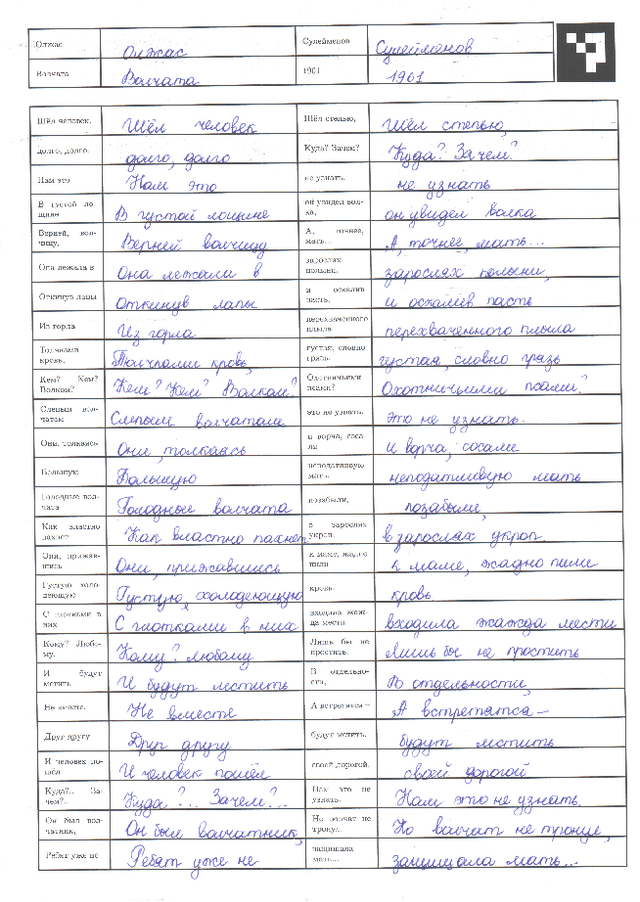 Олжас Олжас Сулейменов Сулейменов
Волчата Волчата 1961 1961
Шёл человек. Шёл человек Шёл степью, Шёл степью,
долго, долго. долго, долго Куда? Зачем? Куда? Зачем?
Нам это Нам это не узнать. не узнать
В густой лощине В густой лощине он увидел волка, он увидел волка
Верней, волчицу, Верней волчицу А, точнее, мать... А, точнее, мать...
Она лежала в Она лежала в зарослях полыни, зарослях полыни,
Откинув лапы Откинув лапы и оскалив пасть. и оскалив пасть
Из горла Из горла перехваченного плыла перехваченного плыла
Толчками кровь, Толчками кровь, густая, словно грязь. густая, словно грязь
Кем? Кем? Волком? Кем? Кем? Волком? Охотничьими псами? Охотничьими псами?
Слепым волчатам Слепым волчатам это не узнать. это не узнать.
Они, толкаясь Они, толкаясь и ворча, сосали и ворча, сосали
Большую Большую неподатливую мать неподатливую мать
Голодные волчата Голодные волчата позабыли, позабыли,
Как властно пахнет Как властно пахнет в зарослях укроп. в зарослях укроп.
Они, прижавшись Они, прижавшись к маме, жадно пили к маме, жадно пили
Густую холодеющую Густую, холодеющую кровь. кровь
С глотками в них С глотками в них входила жажда мести входила жажда мести
Кому? Любому. Кому? любому Лишь бы не простить. Лишь бы не простить
И будут мстить И будут мстить В отдельности, В отдельности,
Не вместе. Не вместе А встретятся – А встретятся –
Друг другу Друг другу будут мстить. будут мстить
И человек пошёл И человек пошёл своей дорогой. своей дорогой
Куда?.. Зачем?.. Куда?... Зачем?... Нам это не узнать. Нам это не узнать.
Он был волчатник, Он был волчатник, Но волчат не тронул, Но волчат не тронул,
Ребят уже не Ребят уже не защищала мать... защищала мать...